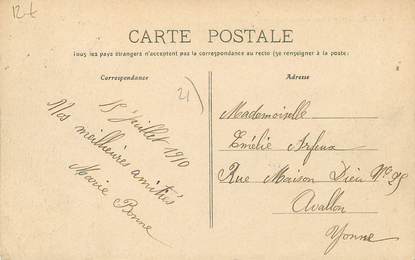 12-t
CARTE POSTALE
Tous les pays étrangers n'acceptent pas la correspondance au recto (se renseigner à la poste)
Correspondance
Adresse
21
15 juillet 1910
Nos meilleures amitiés
Marie Bonne
Mademoiselle
Emélie Arfeux
Rue Maison Dieu N° 25
Avallon
Yonne